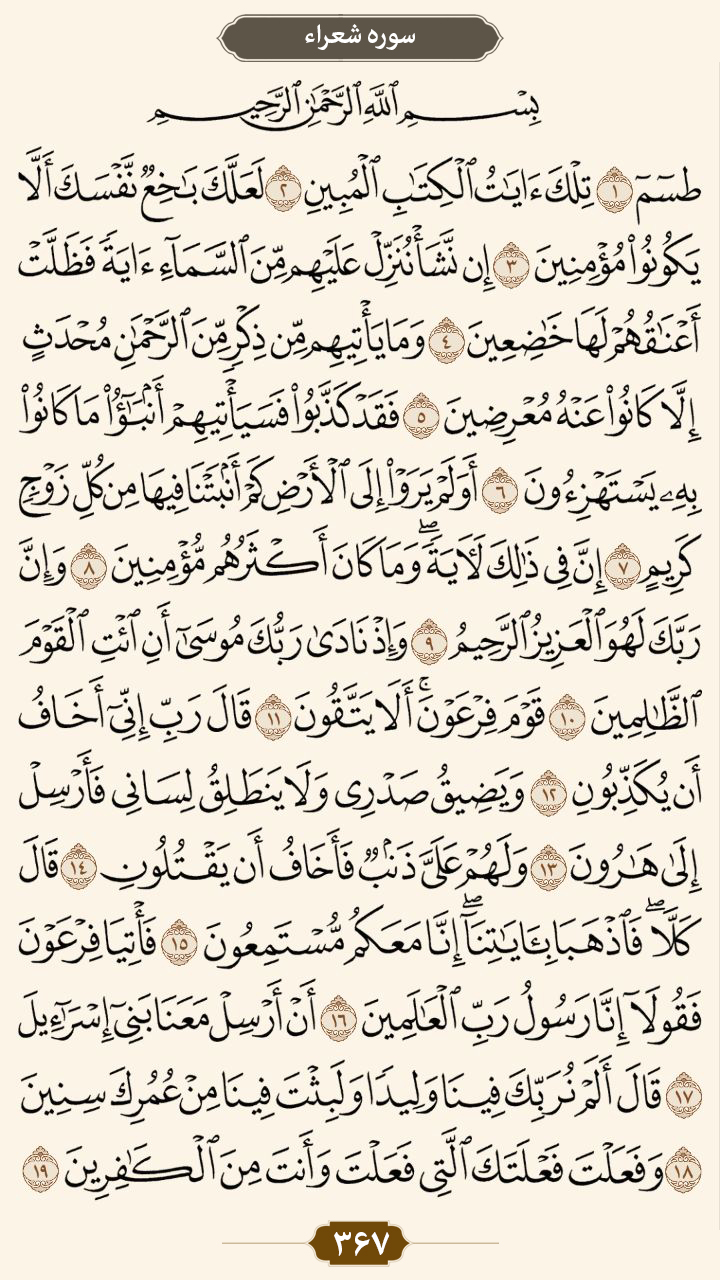 سوره شعراء
بِسۡمِ ٱللَّهِ ٱلرَّحۡمَٰنِ ٱلرَّحِيمِ
طسٓمٓ ١ تِلۡكَ ءَايَٰتُ ٱلۡكِتَٰبِ ٱلۡمُبِينِ ٢ لَعَلَّكَ بَٰخِعٞ نَّفۡسَكَ أَلَّا
يَكُونُواْ مُؤۡمِنِينَ ٣ إِن نَّشَأۡ نُنَزِّلۡ عَلَيۡهِم مِّنَ ٱلسَّمَآءِ ءَايَةٗ فَظَلَّتۡ
أَعۡنَٰقُهُمۡ لَهَا خَٰضِعِينَ ٤ وَمَا يَأۡتِيهِم مِّن ذِكۡرٖ مِّنَ ٱلرَّحۡمَٰنِ مُحۡدَثٍ
إِلَّا كَانُواْ عَنۡهُ مُعۡرِضِينَ ٥ فَقَدۡ كَذَّبُواْ فَسَيَأۡتِيهِمۡ أَنۢبَٰٓؤُاْ مَا كَانُواْ
بِهِۦ يَسۡتَهۡزِءُونَ ٦ أَوَلَمۡ يَرَوۡاْ إِلَى ٱلۡأَرۡضِ كَمۡ أَنۢبَتۡنَا فِيهَا مِن كُلِّ زَوۡجٖ
كَرِيمٍ ٧ إِنَّ فِي ذَٰلِكَ لَأٓيَةٗۖ وَمَا كَانَ أَكۡثَرُهُم مُّؤۡمِنِينَ ٨ وَإِنَّ
رَبَّكَ لَهُوَ ٱلۡعَزِيزُ ٱلرَّحِيمُ ٩ وَإِذۡ نَادَىٰ رَبُّكَ مُوسَىٰٓ أَنِ ٱئۡتِ ٱلۡقَوۡمَ
ٱلظَّٰلِمِينَ ١٠ قَوۡمَ فِرۡعَوۡنَۚ أَلَا يَتَّقُونَ ١١ قَالَ رَبِّ إِنِّيٓ أَخَافُ
أَن يُكَذِّبُونِ ١٢ وَيَضِيقُ صَدۡرِي وَلَا يَنطَلِقُ لِسَانِي فَأَرۡسِلۡ
إِلَىٰ هَٰرُونَ ١٣ وَلَهُمۡ عَلَيَّ ذَنۢبٞ فَأَخَافُ أَن يَقۡتُلُونِ ١٤ قَالَ
كَلَّاۖ فَٱذۡهَبَا بِـَٔايَٰتِنَآۖ إِنَّا مَعَكُم مُّسۡتَمِعُونَ ١٥ فَأۡتِيَا فِرۡعَوۡنَ
فَقُولَآ إِنَّا رَسُولُ رَبِّ ٱلۡعَٰلَمِينَ ١٦ أَنۡ أَرۡسِلۡ مَعَنَا بَنِيٓ إِسۡرَٰٓءِيلَ
١٧ قَالَ أَلَمۡ نُرَبِّكَ فِينَا وَلِيدٗا وَلَبِثۡتَ فِينَا مِنۡ عُمُرِكَ سِنِينَ
١٨ وَفَعَلۡتَ فَعۡلَتَكَ ٱلَّتِي فَعَلۡتَ وَأَنتَ مِنَ ٱلۡكَٰفِرِينَ ١٩
۳۶۷